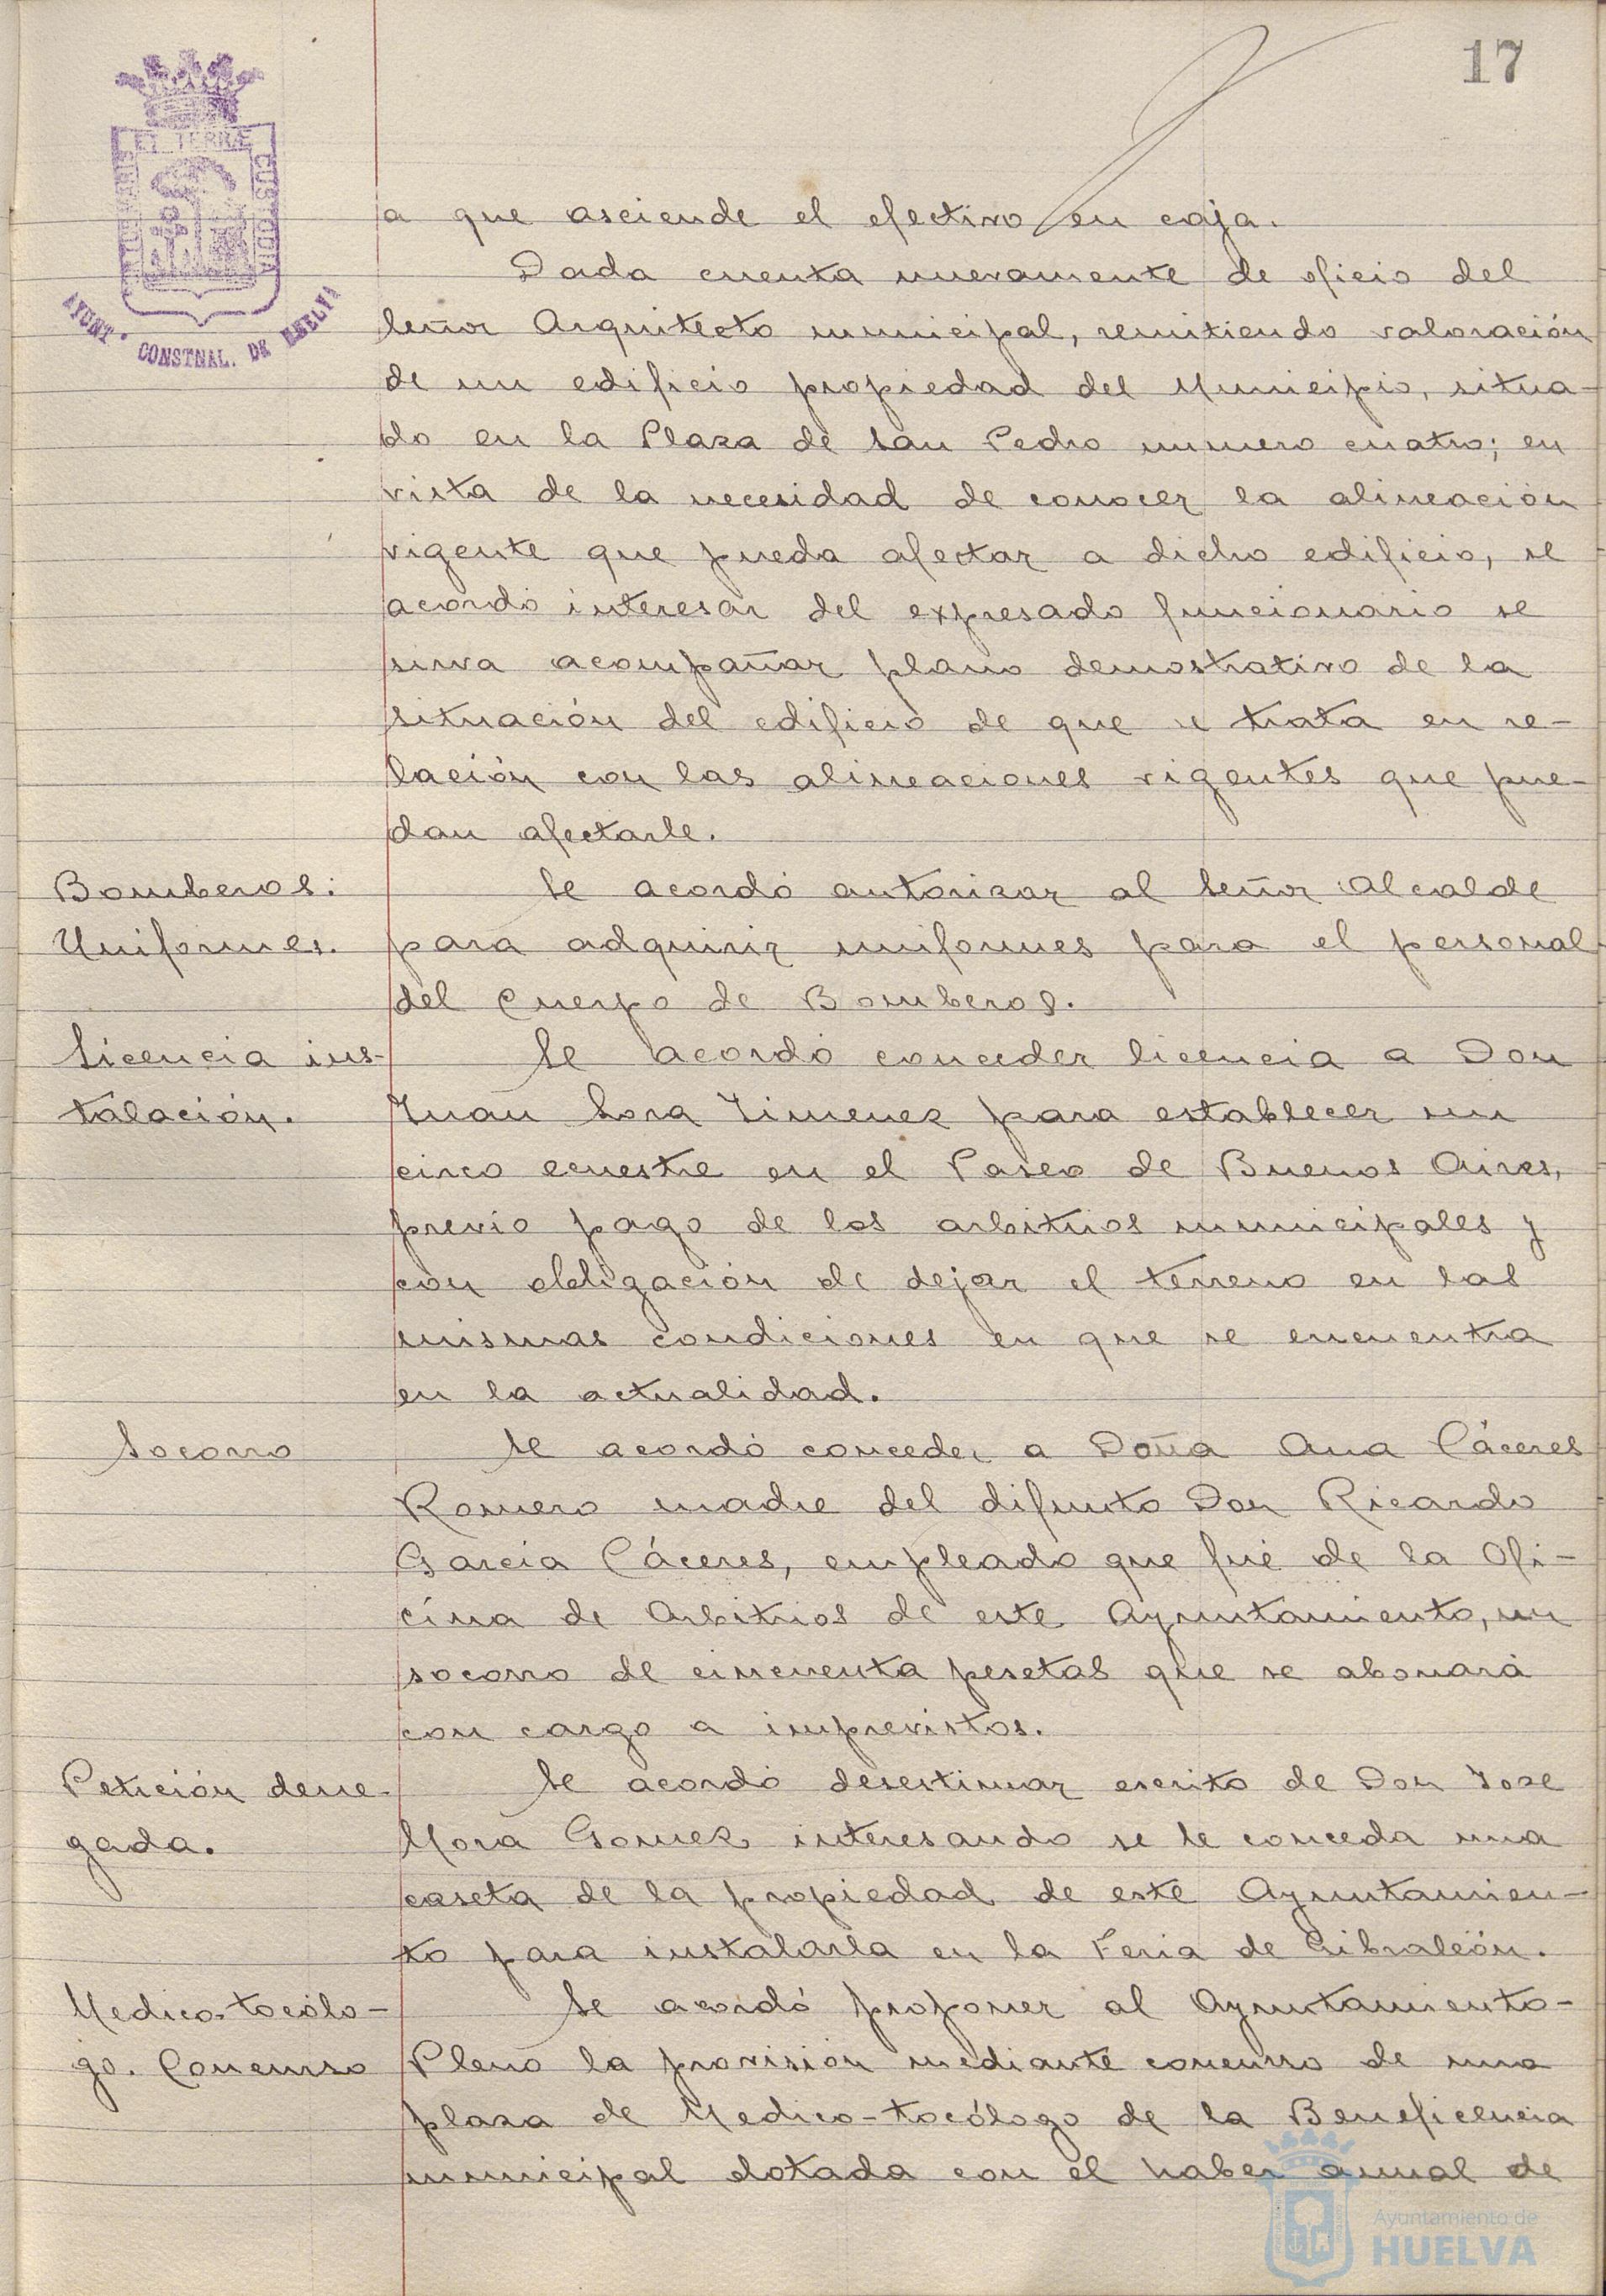 17
PORTUS MARIS
ET TERRÆ
CUSTODIA
AYUNTº CONSTNAL. DE HUELVA
a que asciende el efectivo en caja.
Dada cuenta nuevamente de oficio del
Señor Arquitecto municipal, remitiendo valoración
de un edificio propiedad del Municipio, situa-
do en la Plaza de San Pedro numero cuatro; en
vista de la necesidad de conocer la alineación
vigente que pueda afectar a dicho edificio, se
acordó interesar del expresado funcionario se
sirva acompañar plano demostrativo de la
situación del edificio de que se trata en re-
lación con las alineaciones vigentes que pue-
dan afectarle.
Bomberos:
Uniformes.
Se acordó autorizar al Señor Alcalde
para adquirir uniformes para el personal
del Cuerpo de Bomberos.
Licencia ins-
talación.
Se acordó conceder licencia a Don
Juan Lora Jimenez para establecer un
circo ecuestre en el Paseo de Buenos Aires,
previo pago de los arbitrios municipales y
con obligación de dejar el terreno en las
mismas condiciones en que se encuentra
en la actualidad.
Socorro
Se acordó conceder a Doña Ana Cáceres
Romero madre del difunto Don Ricardo
García Cáceres, empleado que fué de la Ofi-
cina de Arbitrios de este Ayuntamiento, un
socorro de cincuenta pesetas que se abonará
con cargo a imprevistos.
Petición dene-
gada.
Se acordó desestimar escrito de Don Jose
Mora Gomez interesando se le conceda una
caseta de la propiedad de este Ayuntamien-
to para instalarla en la Feria de Gibraleón.
Medico-tocólo-
go. Concurso
Se acordó proponer al Ayuntamiento-
Pleno la provisión mediante concurso de una
plaza de Medico-tocólogo de la Beneficencia
municipal dotada con el haber anual de
Ayuntamiento de
HUELVA